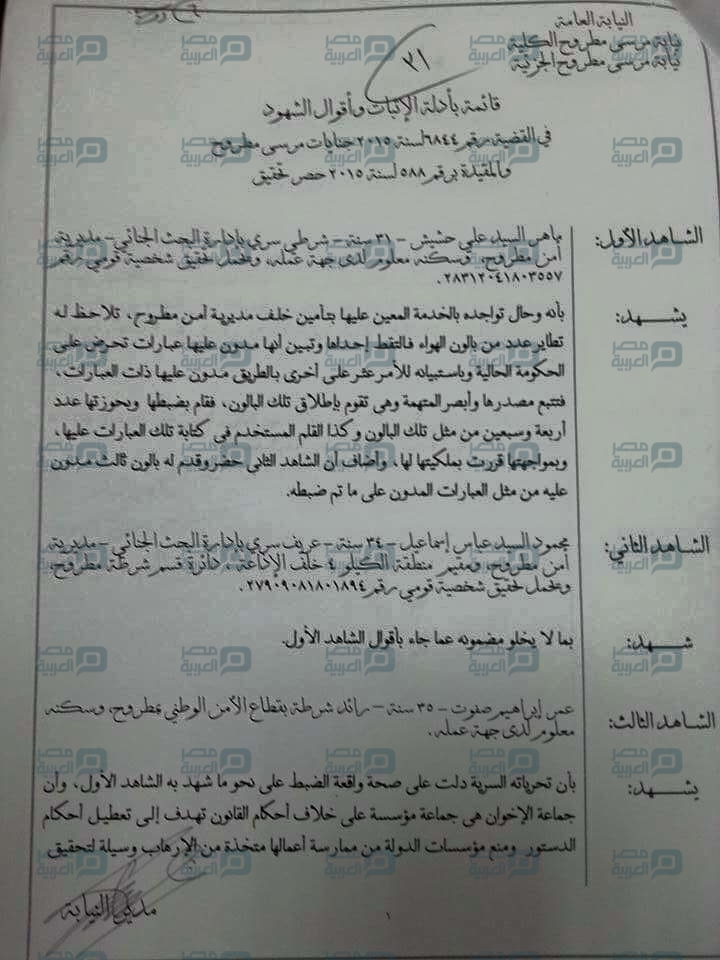 النيابة العامة
نيابة مرسى مطروح الكلية
نيابة مرسى مطروح الجزئية
٣١
قائمة بأدلة الإثبات وأقوال الشهود
في القضية رقم ٦٨٤٤ لسنة ٢٠١٥ جنايات مرسى مطروح
والمقيدة برقم ٥٨٨ لسنة ٢٠١٥ حصر تحقيق
الشاهد الأول: ماهر السيد علي حشيش – ٣١ سنة – شرطي سري بإدارة البحث الجنائي – مديرية
أمن مطروح، وسكنه معلوم لدى جهة عمله، ويحمل تحقيق شخصية قومي رقم
٢٨٣١٢٠٤١٨٠٣٥٥٧.
يشهد: بأنه وحال تواجده بالخدمة المعين عليها بتأمين خلف مديرية أمن مطروح، تلاحظ له
تطاير عدد من بالون الهواء فالتقط إحداها وتبين أنها مدون عليها عبارات تحرض على
الحكومة الحالية وباستبيانه للأمر عثر على أخرى بالطريق مدون عليها ذات العبارات،
فتتبع مصدرها وأبصر المتهمة وهى تقوم بإطلاق تلك البالون، فقام بضبطها وبحوزتها عدد
أربعة وسبعين من مثل تلك البالون و كذا القلم المستخدم في كتابة تلك العبارات عليها،
وبمواجهتها قررت بملكيتها لها، وأضاف أن الشاهد الثانى حضر وقدم له بالون ثالث مدون
عليه من مثل العبارات المدون على ما تم ضبطه.
الشاهد الثاني: محمود السيد عباس إسماعيل – ٣٤ سنة – عريف سري بإدارة البحث الجنائي – مديرية
أمن مطروح، ومقيم منطقة الكيلو ٤ خلف الإذاعة، دائرة قسم شرطة مطروح،
ويحمل تحقيق شخصية قومي رقم ٢٧٩٠٩٠٨١٨٠١٨٩٤.
شهد: بما لا يخلو مضمونه عما جاء بأقوال الشاهد الأول.
الشاهد الثالث: عمر إبراهيم صفوت – ٣٥ سنة – رائد شرطة بقطاع الأمن الوطني بمطروح، وسكنه
معلوم لدى جهة عمله.
يشهد: بأن تحرياته السرية دلت على صحة واقعة الضبط على نحو ما شهد به الشاهد الأول، وأن
جماعة الإخوان هى جماعة مؤسسة على خلاف أحكام القانون تهدف إلى تعطيل أحكام
الدستور ومنع مؤسسات الدولة من ممارسة أعمالها متخذة من الإرهاب وسيلة لتحقيق
مدير النيابة
١
مصر العربية